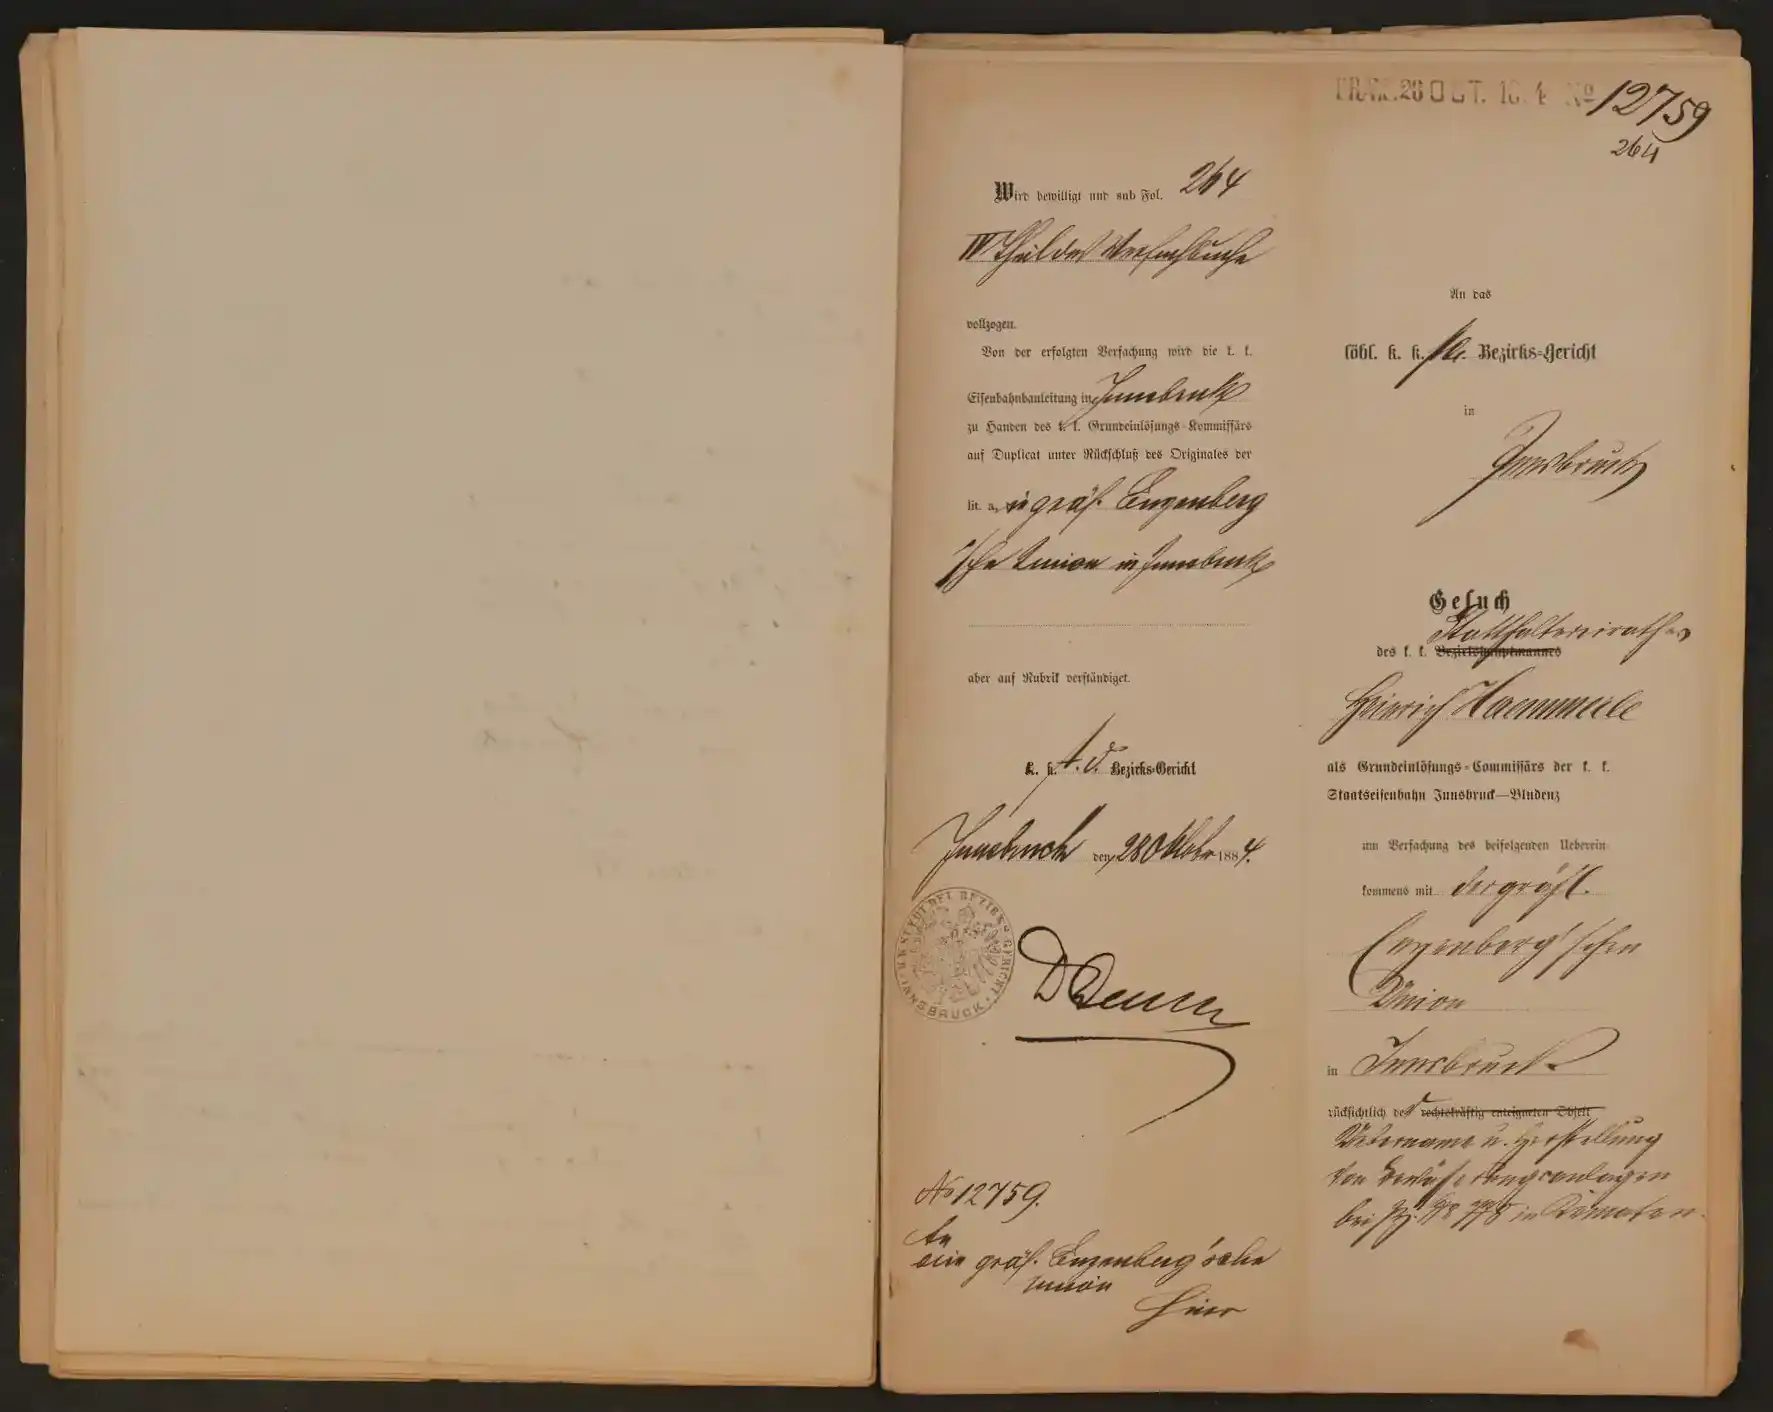 PRÄS. 28 OCT. 18 4 No 12759
264
Wird bewilligt und sub Fol. 264
IV Theil des Verfachbuche
vollzogen.
Von der erfolgten Verfachung wird die k. k.
Eisenbahnbauleitung in Innsbruck
zu Handen des k. k. Grundeinlösungs-Kommissärs
auf Duplicat unter Rückschluß des Originales der
lit. a, gräf. Enzenberg
'sche Union in Innsbruck
aber auf Rubrik verständiget.
K. k. st. d. Bezirks-Gericht
Innsbruck den 28 Oktobr 1884.
STÄDT. DEL. BEZIRKS GERICHT INNSBRUCK
No 12759.
An
die gräf. Enzenberg'sche
Union
Hier
An das
löbl. k. k. Bezirks-Gericht
in
Innsbruck
Gesuch
Statthaltereirathes
des k. k. Bezirkshauptmannes
Heinrich Haemmerle
als Grundeinlösungs-Commissärs der k. k.
Staatseisenbahn Innsbruck—Bludenz
um Verfachung des beifolgenden Ueberein-
kommens mit der gräfl.
Enzenberg'schen
Union
in Innsbruck
rücksichtlich der rechtskräftig enteigneten Objekt
Übername u. Herstellung
von Bewässerungsanlagen
bei in Kematen.